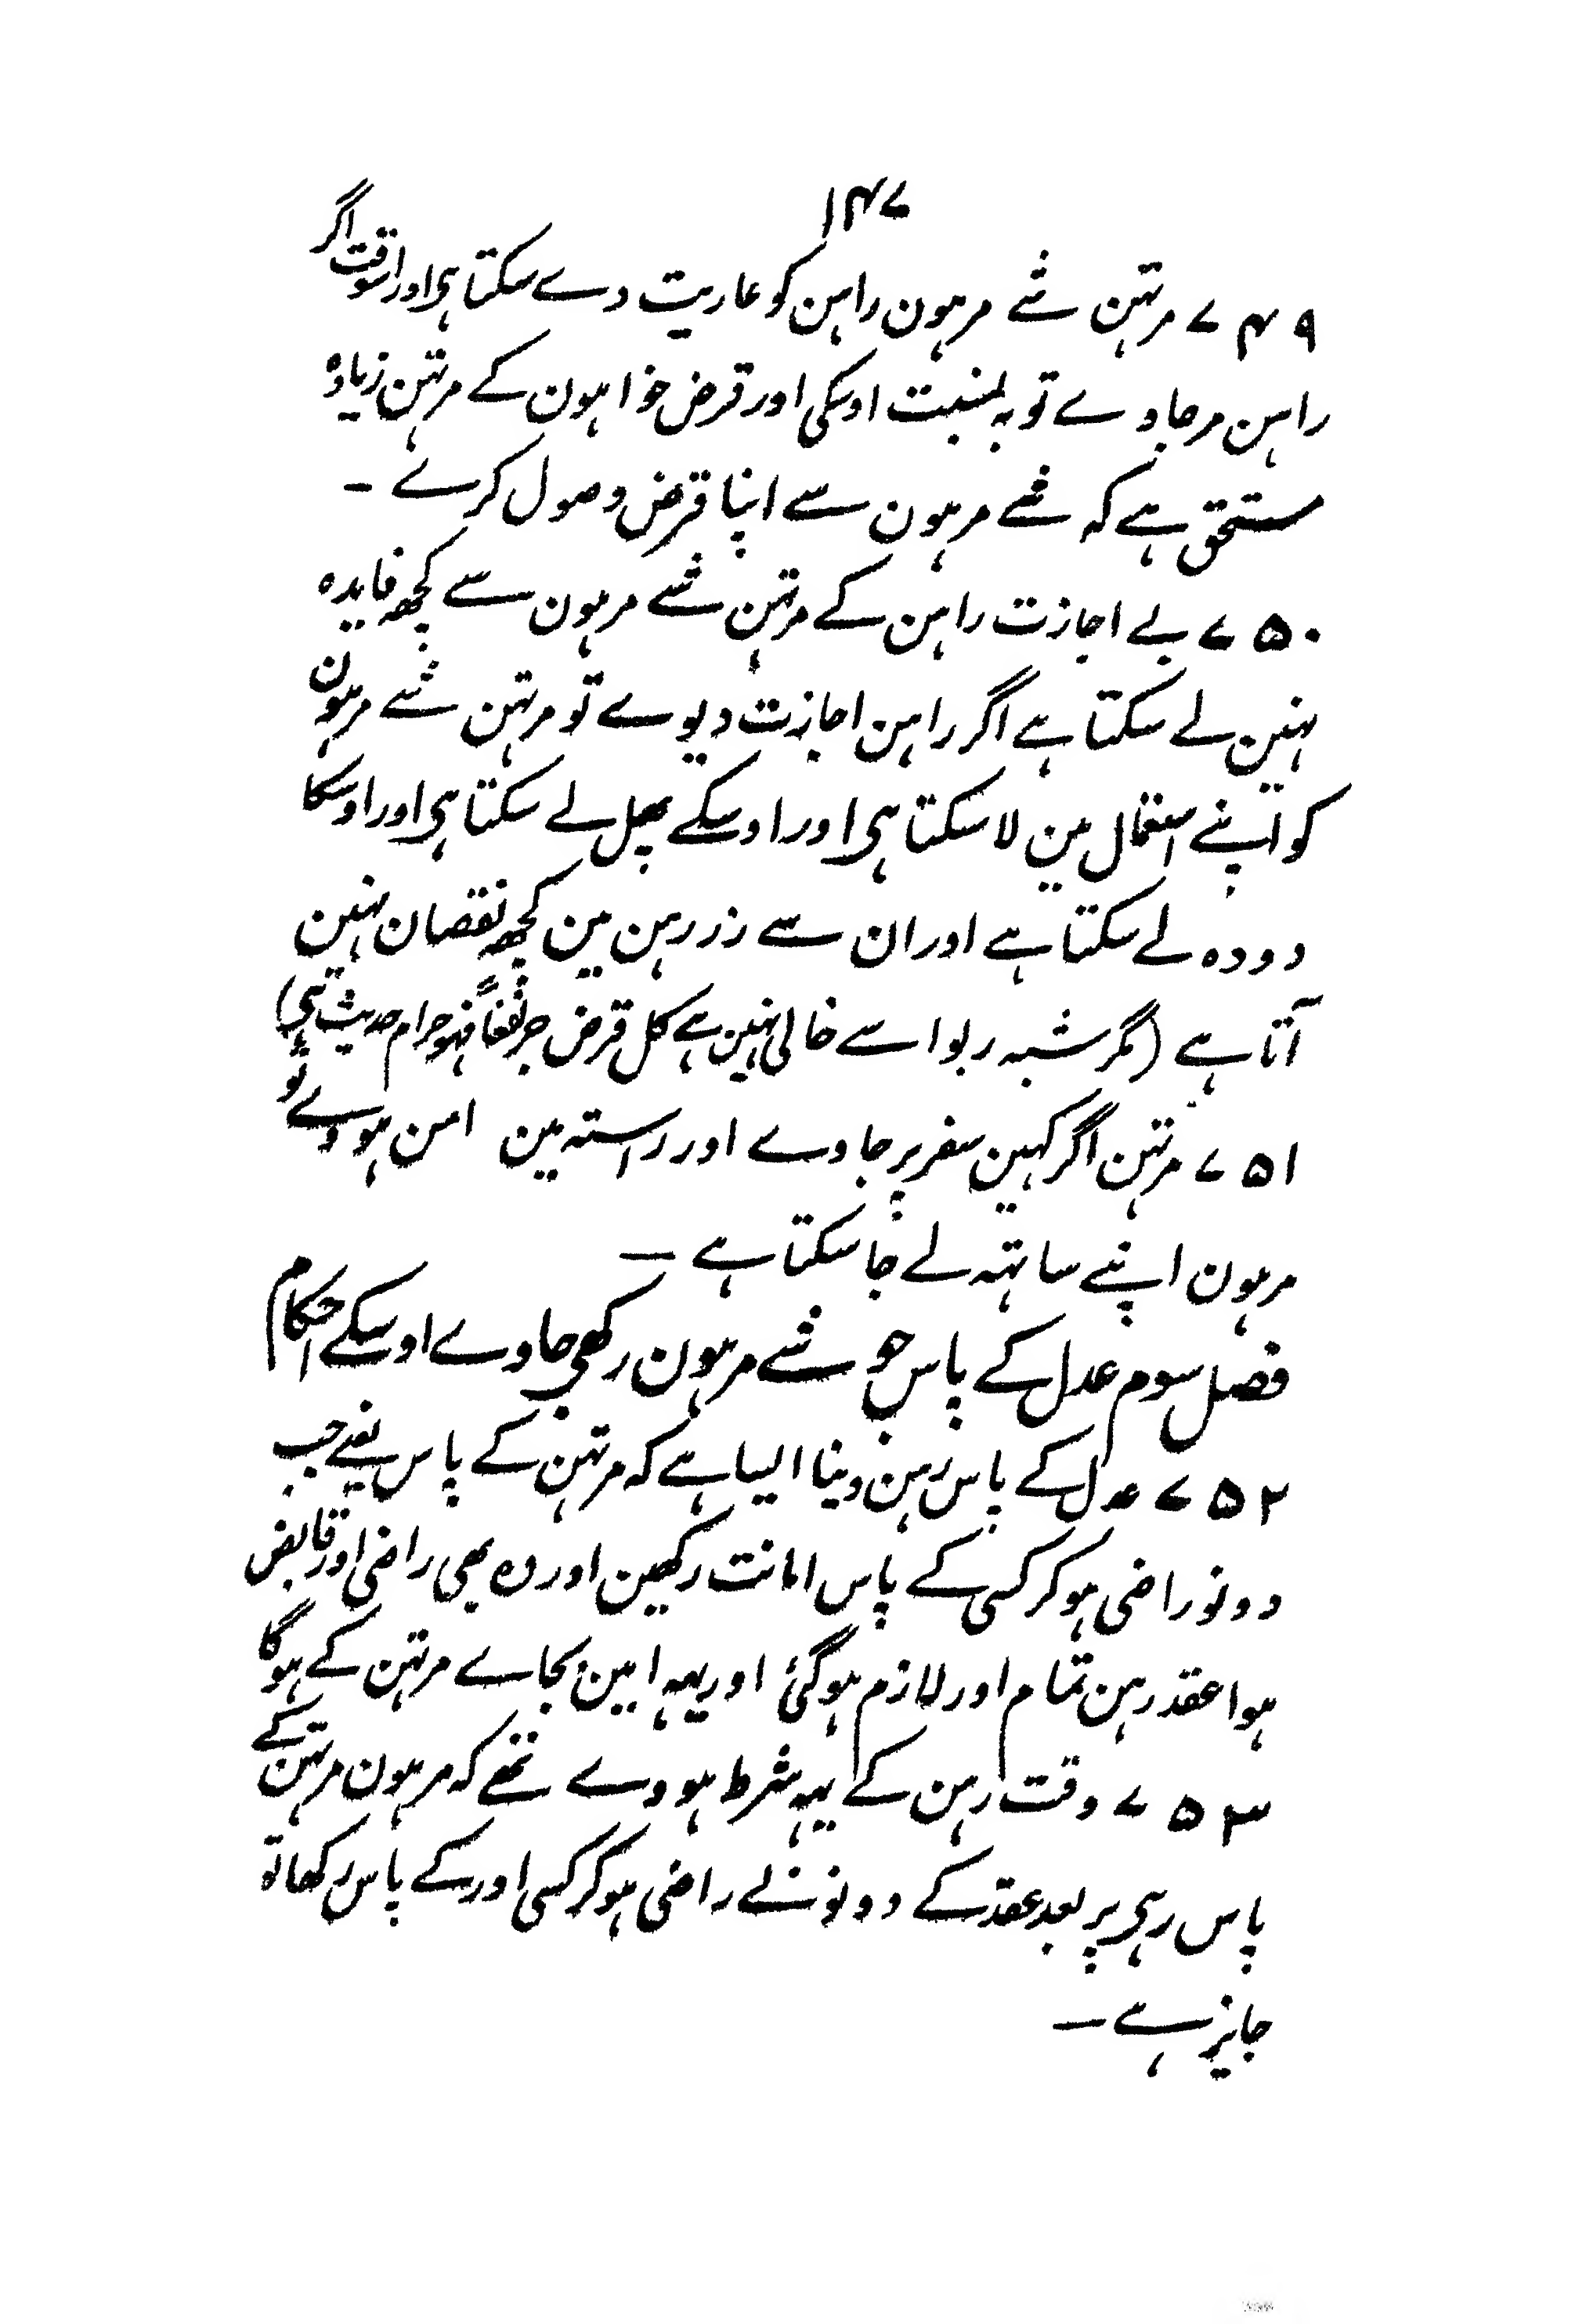 ۱۴۷
۷۴۹ مرتہن شے مرہون راہن کو عاریت دے سکتا ہی اور اسوقت اگر
راہن مرجاوے تو بہ نسبت اوسکی اور قرض خواہون کے مرتہن زیادہ
مستحق ہے کہ شے مرہون سے اپنا قرض وصول کرے ـ
۷۵۰ بے اجازت راہن کے مرتہن شے مرہون سے کچھ فایدہ
نہین لے سکتا ہے اگر راہن اجازت دیوے تو مرتہن شے مرہون
کو اپنے استعمال مین لا سکتا ہی اور اوسکے پھل لے سکتا ہی اور اوسکا
دودہ لے سکتا ہے اور ان سے زر رہن مین کچھ نقصان نہین
آتا ہے (مگر شبہ ربوا سے خالی نہین ہے کل قرض جر نفعاً فہو حرام حدیث ہی)
۷۵۱ مرتہن اگر کہین سفر پر جاوے اور رستہ مین امن ہووے تو
مرہون اپنے ساتہہ لے جا سکتا ہے ـ
فصل سوم عدل کے پاس جو شے مرہون رکھی جاوے اوسکے احکام
۷۵۲ عدل کے پاس رہن دینا ایسا ہے کہ مرتہن کے پاس یعنے جب
دونو راضی ہو کر کسی کے پاس امانت رکھین اور وہ بھی راضی اور قابض
ہوا عقد رہن تمام اور لازم ہو گئی اور یہہ امین بجاے مرتہن کے ہو گا
۷۵۳ وقت رہن کے یہہ شرط ہووے تھے کہ مرہون مرتہن کے
پاس رہی پر بعد عقد کے دونو نے راضی ہو کر کسی اور کے پاس رکھا تو
جایز ہے ـ